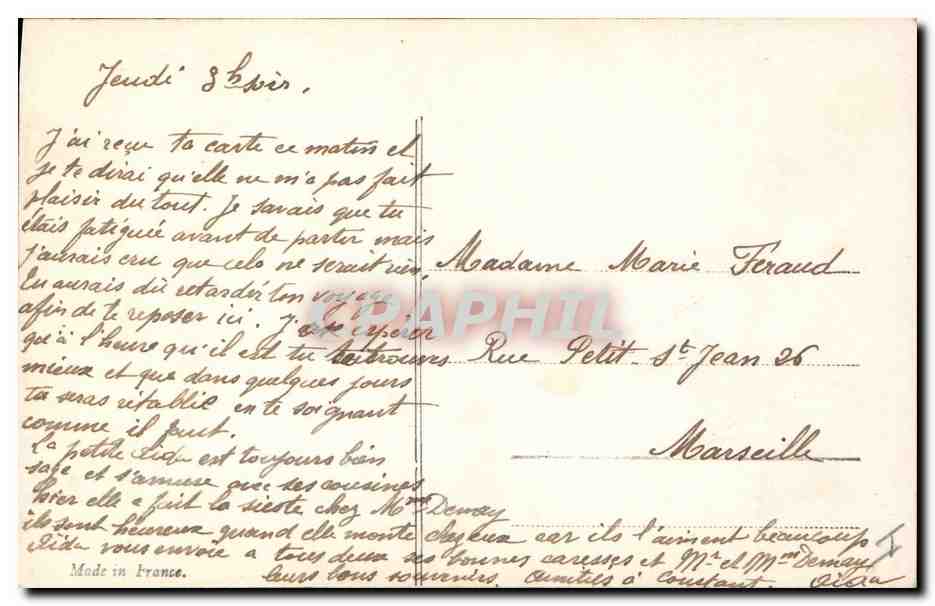 Jeudi 8h soir.
J'ai reçu ta carte ce matin et
je te dirai qu'elle ne m'a pas fait
plaisir du tout. Je savais que tu
étais fatiguée avant de partir mais
j'aurais cru que cela ne serait rien.
Tu aurais dû retarder ton voyage
afin de te reposer ici. J'
espérer
qu'à l'heure qu'il est tu te trouves
mieux et que dans quelques jours
tu seras rétablie en te soignant
comme il faut.
La petite Aida est toujours bien
sage et s'amuse avec ses cousines
hier elle a fait la sieste chez Mme Demay
ils sont heureux quand elle monte chez eux car ils l'aiment beaucoup
Aida vous envoie a tous deux ses bonnes caresses et Mr et Mme Demay
leurs bons souvenirs. Amitiés à Constant.
Madame Marie Feraud
Rue Petit St Jean 26
Marseille
Made in France.
CPAPHIL